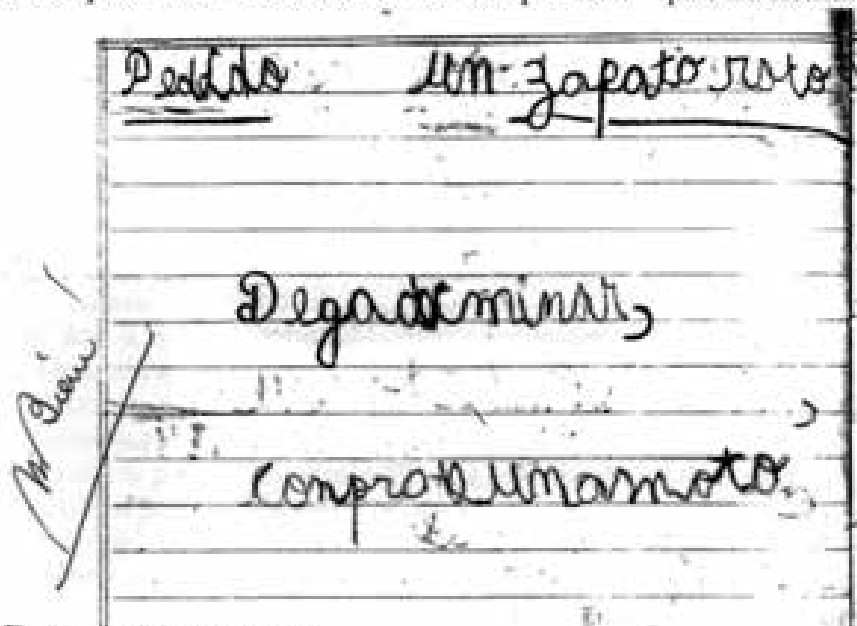 Pedido Un zapato roto
Degadminar,
conprate unamoto.
M Bien